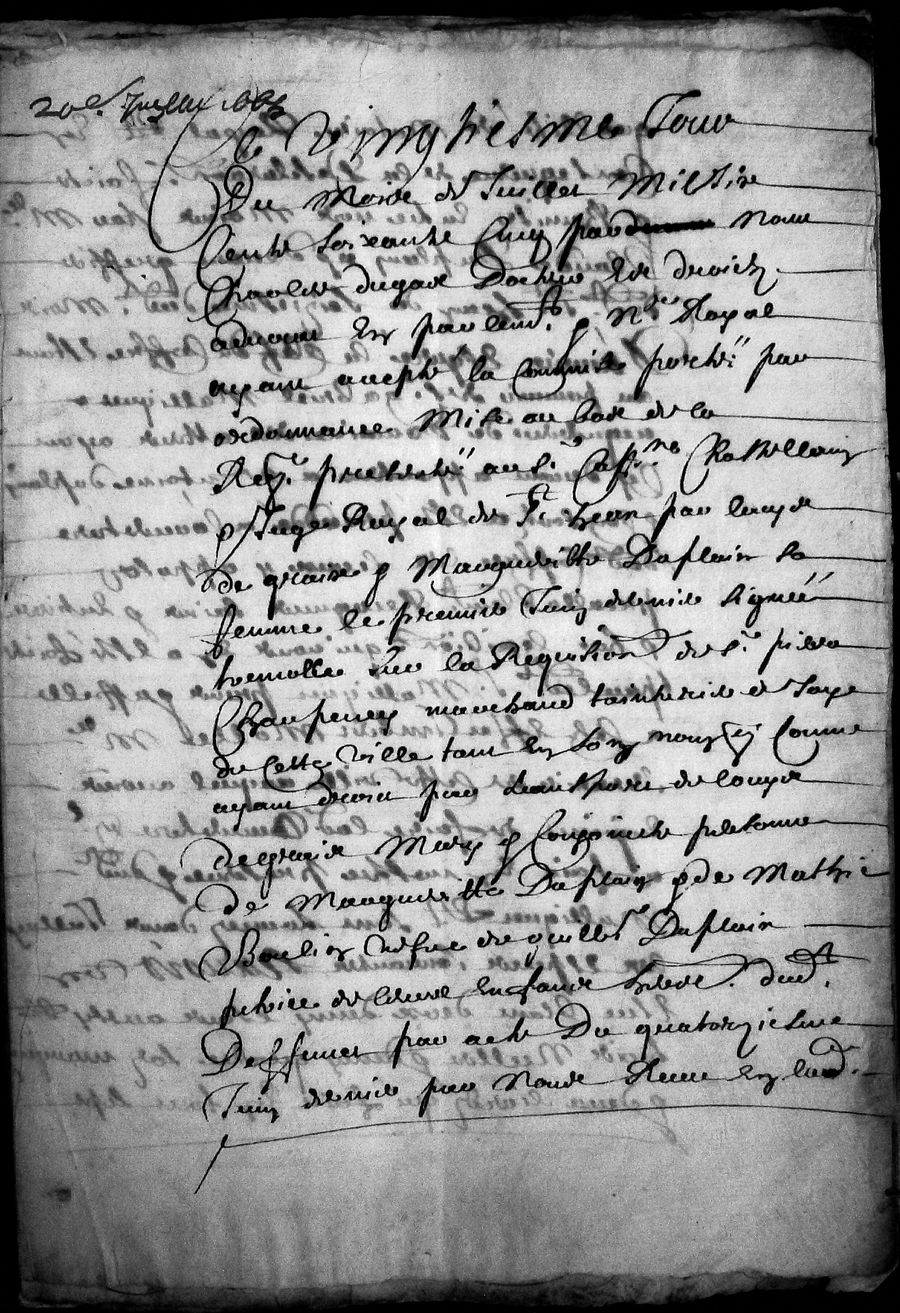 20e Juillet 1665
Le Vingtiesme Jour
Du Mois de Juillet Mil Six
Cents soixante Cinq par nous
Charles dugas Docteur es droicts
advocat en parlemt. & Nre Royal
ayant accepté la Commise portéé par
ordonnance Mise au bas de la
Reqte presentéé au Sr Cappne Chastellain
& Juge Royal de St par
de graix & Margueritte Duplain sa
femme le premier Juin dernier Signéé
tremollet Sur la Requision de Sr pierre
marchand tainturier de soye
de cette Ville tant en son nom comme
ayant droict par transport de
degraix Mary & Conjoincte personne
de Margueritte Duplain & de Mathie
Boulieu vefve de guillme Duplain
de leurs enfans dudt
Deffunct par acte Du quatorziesme
Juin dernier par Nous Receu en lad.